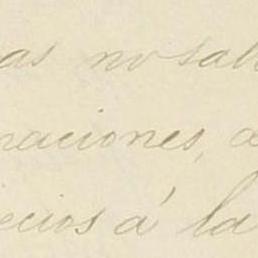 as no sal
naciones, a
ecios á la